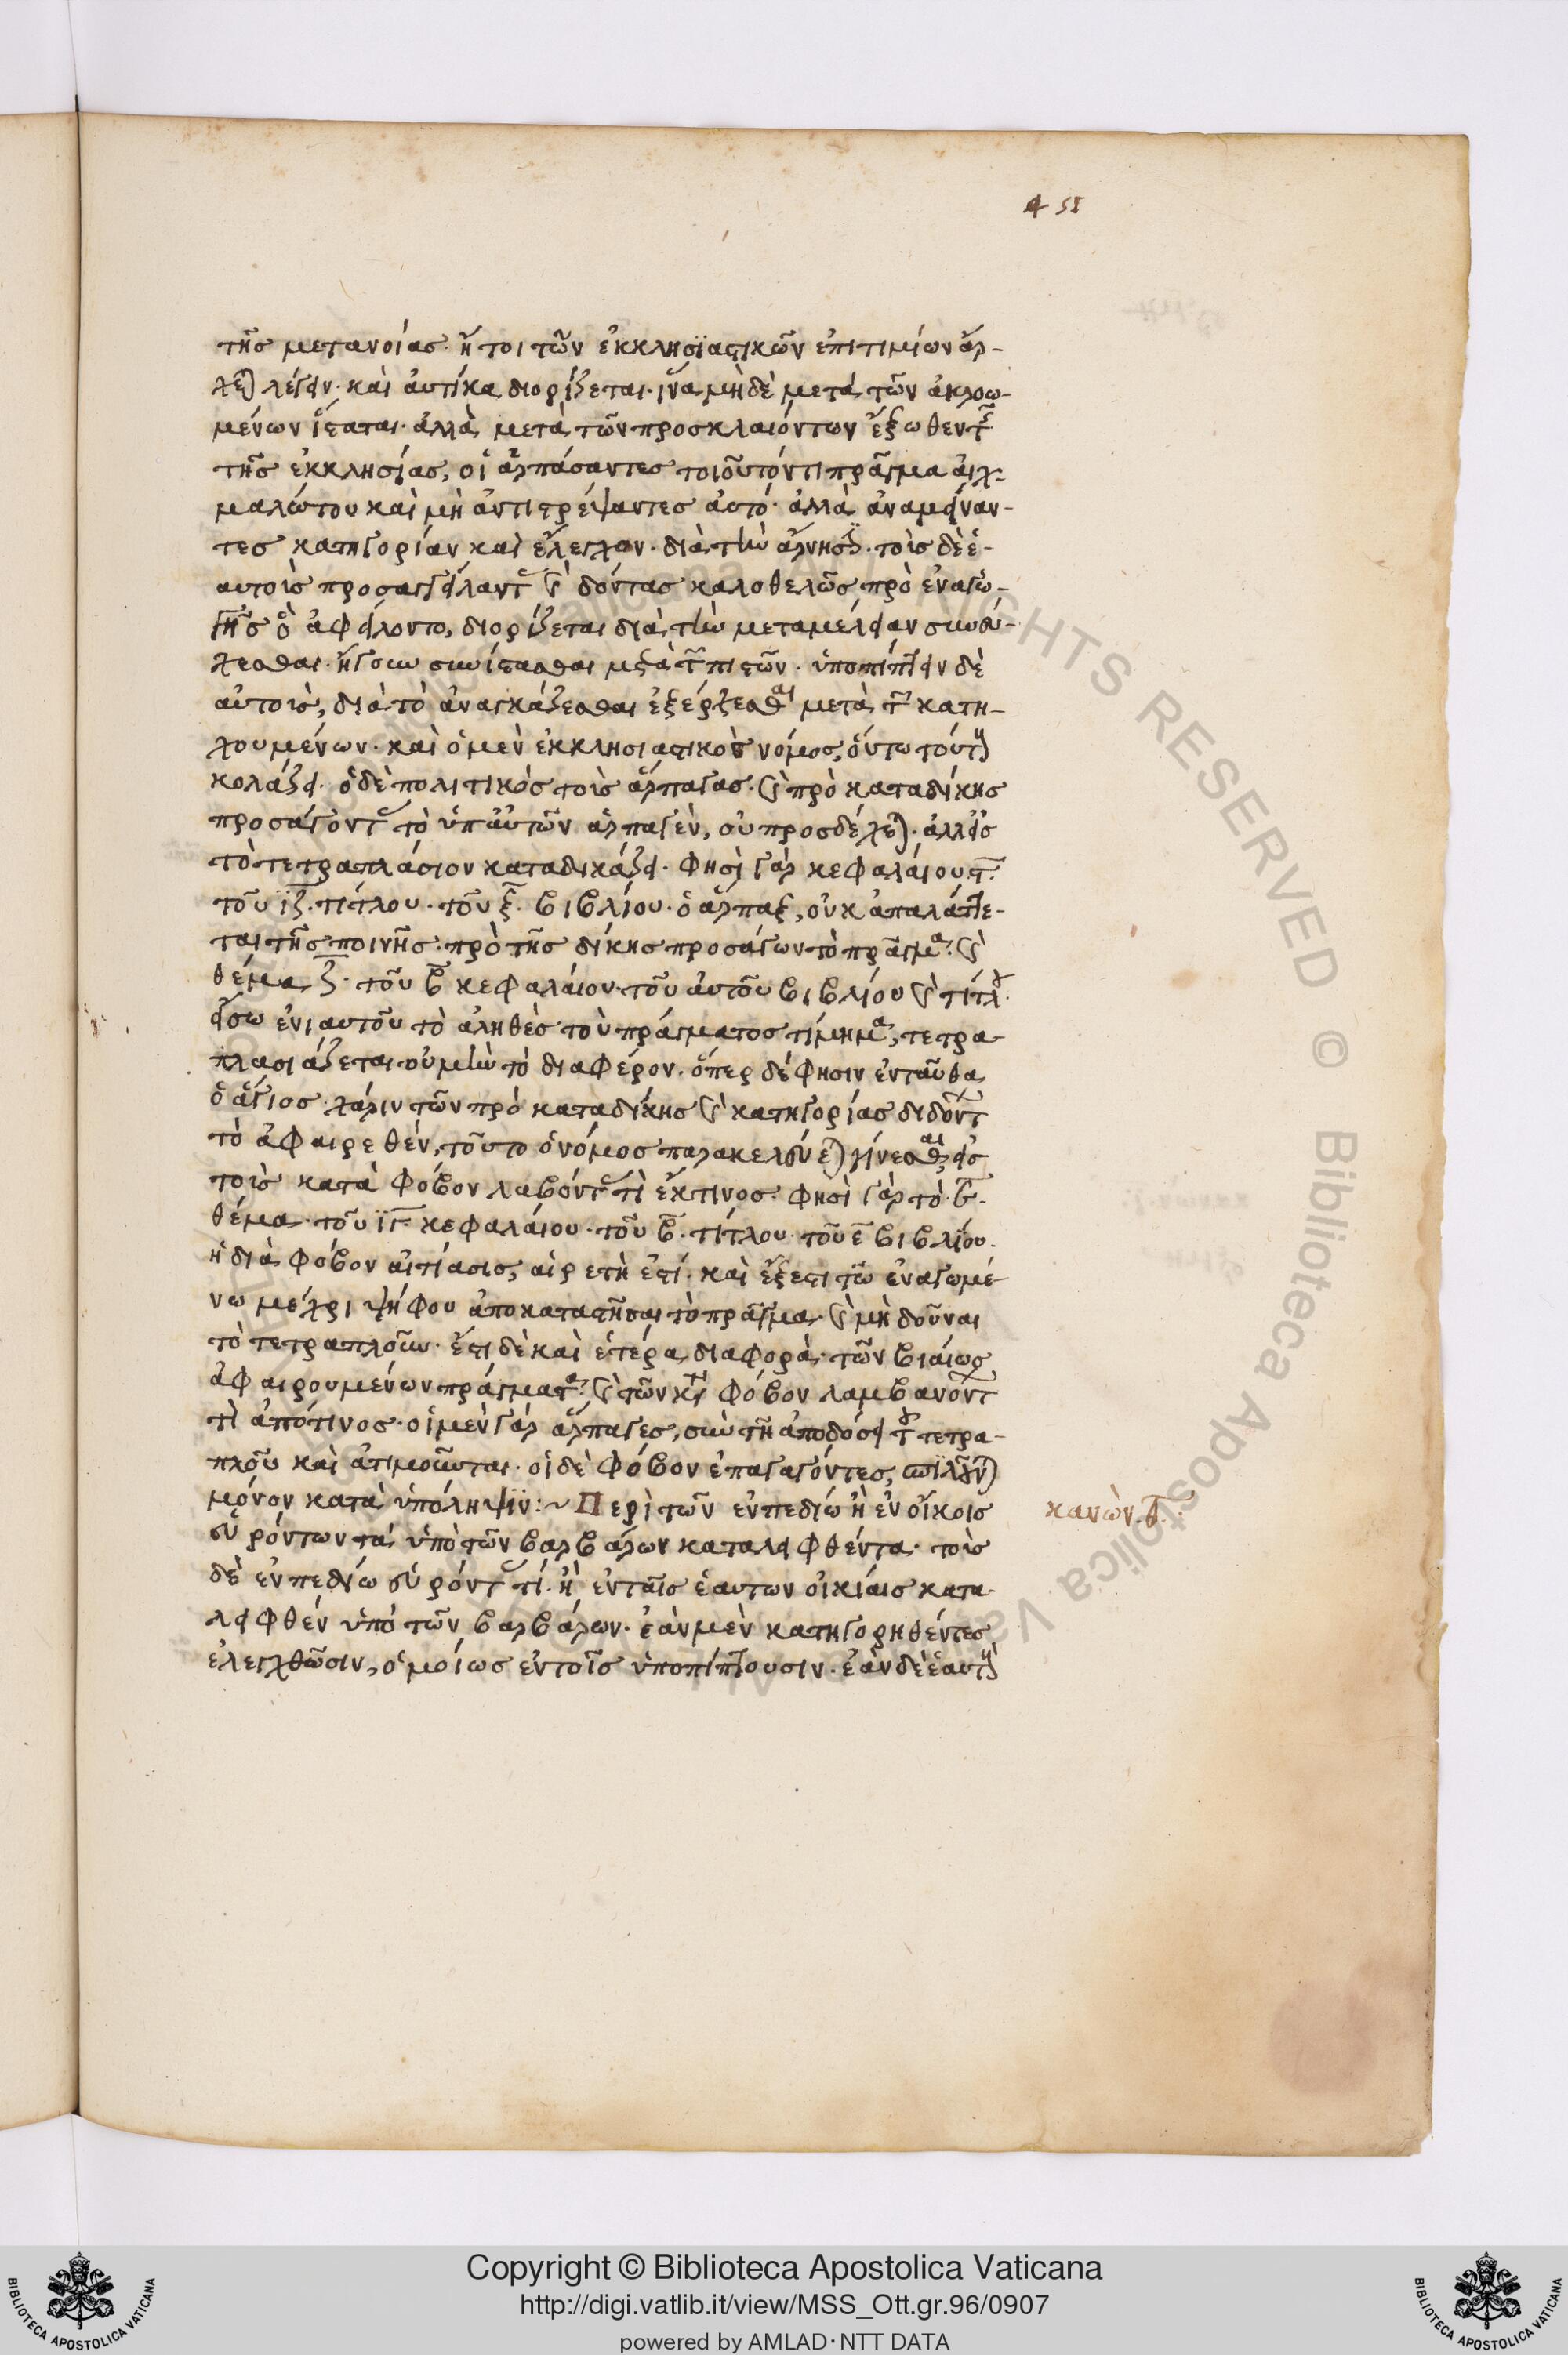 451
τῆς μετανοίας· ἤτοι τῶν ἐκκλησϊαστικῶν ἐπιτιμίων ἄρ-
χε) λέγειν· καὶ αὐτίκα διορίζεται· ἵνα μηδὲ μετὰ τῶν ἀκροω-
μένων ἵσταται· ἀλλὰ μετὰ τῶν προσκλαιόντων ἔξωθεν τ
τῆς ἐκκλησίας, οἱ ἁρπάσαντες τοιοῦτόν τι πρᾶγμα αἰχ-
μαλώτου καὶ μὴ ἀντιστρέψαντες αὐτό· ἀλλὰ ἀναμείναν-
τες κατηγορίαν καὶ ἔλεγχον· διὰ τὴν ἄρνησ· τοὶς δὲ ἑ-
αυτοὶς προσαγγείλαντ καὶ δόντας καλοθελῶς πρὸ ἐναγω-
γῆς ὃ ἀφείλοντο, διορίζεται διὰ τὴν μεταμέλειαν συνεύ-
χεσθαι· ἤγουν συνίστασθαι μετὰ τ πιστῶν· ὑποπίπτειν δὲ
αὐτοὺς, διὰ τὸ ἀναγκάζεσθαι ἐξέρχεσθαι μετὰ τ κατη-
χουμένων· καὶ ὁ μὲν ἐκκλησιαστικὸς νόμος, οὕτω τούτ
κολάζει· ὁ δὲ πολιτικός τοὶς ἅρπαγας· καὶ πρὸ καταδίκης
προσάγοντ τὸ ὑπ αὐτῶν ἁρπαγὲν, οὐ προσδέχε)· ἀλλ εἰς
τὸ τετραπλάσιον καταδικάζει· φησὶ γὰρ κεφαλαίου τ
τοῦ ϊζ· τίτλου· τοῦ ξ· βιβλίου· ὁ ἅρπαξ, οὐκ ἀπαλάττε-
ται τῆς ποινῆς· πρὸ τῆς δίκης προσάγων τὸ πρᾶγμα· καὶ
θέμα ζ· τοῦ β κεφαλαίου· τοῦ αὐτοῦ βιβλίου καὶ τίτλ
εἴσω ἐνιαυτοῦ τὸ ἀληθὲς τοὺ πράγματος τίμημα, τετρα-
πλασιάζεται· οὐ μὴν τὸ διαφέρον· ὅπερ δέ φησιν ἐνταῦθα
ὁ ἅγιος· χάριν τῶν πρὸ καταδίκης καὶ κατηγορίας διδοντ
τὸ ἀφαιρεθέν, τοῦτο ὁ νόμος παρακελεύε) γίνεσθαι, εἰς
τοὶς κατὰ φόβον λαβόντ τὶ ἔκ τινος· φησὶ γὰρ τὸ· β·
θέμα· τοῦ ϊγ κεφαλαίου· τοῦ β· τίτλου· τοῦ ε βιβλίου·
ἡ διὰ φόβον αἰτίασις, αἱρετὴ ἐστί· καὶ ἔξεστι τῶ ἐναγωμέ-
νω μέχρι ψήφου ἀποκαταστῆσαι τὸ πρᾶγμα· καὶ μὴ δοῦναι
τὸ τετραπλοῦν· ἔστι δὲ καὶ ἑτέρα διαφορὰ· τῶν βιαίως
ἀφαιρουμένων πράγματα· καὶ τῶν κτ φόβον λαμβανοντ
τὶ ἀπό τινος· οἱ μὲν γὰρ ἅρπαγες, σὺν τῆ ἀποδόσει τ τετρα-
πλοῦ καὶ ἀτιμοῦνται· οἱ δὲ φόβον ἐπαγαγόντες,
μόνον κατὰ ὑπόληψϊν:~ Περὶ τῶν ἐν πεδίω ἢ ἐν οἴκοις
εὑρόντων τὰ ὑπὸ τῶν βαρβάρων καταλειφθέντα· τοὶς
δὲ ἐν πεδίω εὑρόντ τί· ἢ ἐν ταῖς ἑαυτων οἰκίαις κατα-
λειφθέν ὑπὸ τῶν βαρβάρων· ἐὰν μὲν κατηγορηθέντες
ἐλεγχθῶσιν, ὁμοίως ἐν τοῖς ὑποπίπτουσιν· ἐὰν δὲ ἑαυτ
κανὼν·θ·
Copyright © Biblioteca Apostolica Vaticana
http://digi.vatlib.it/view/MSS_Ott.gr.96/0907
powered by AMLAD·NTT DATA